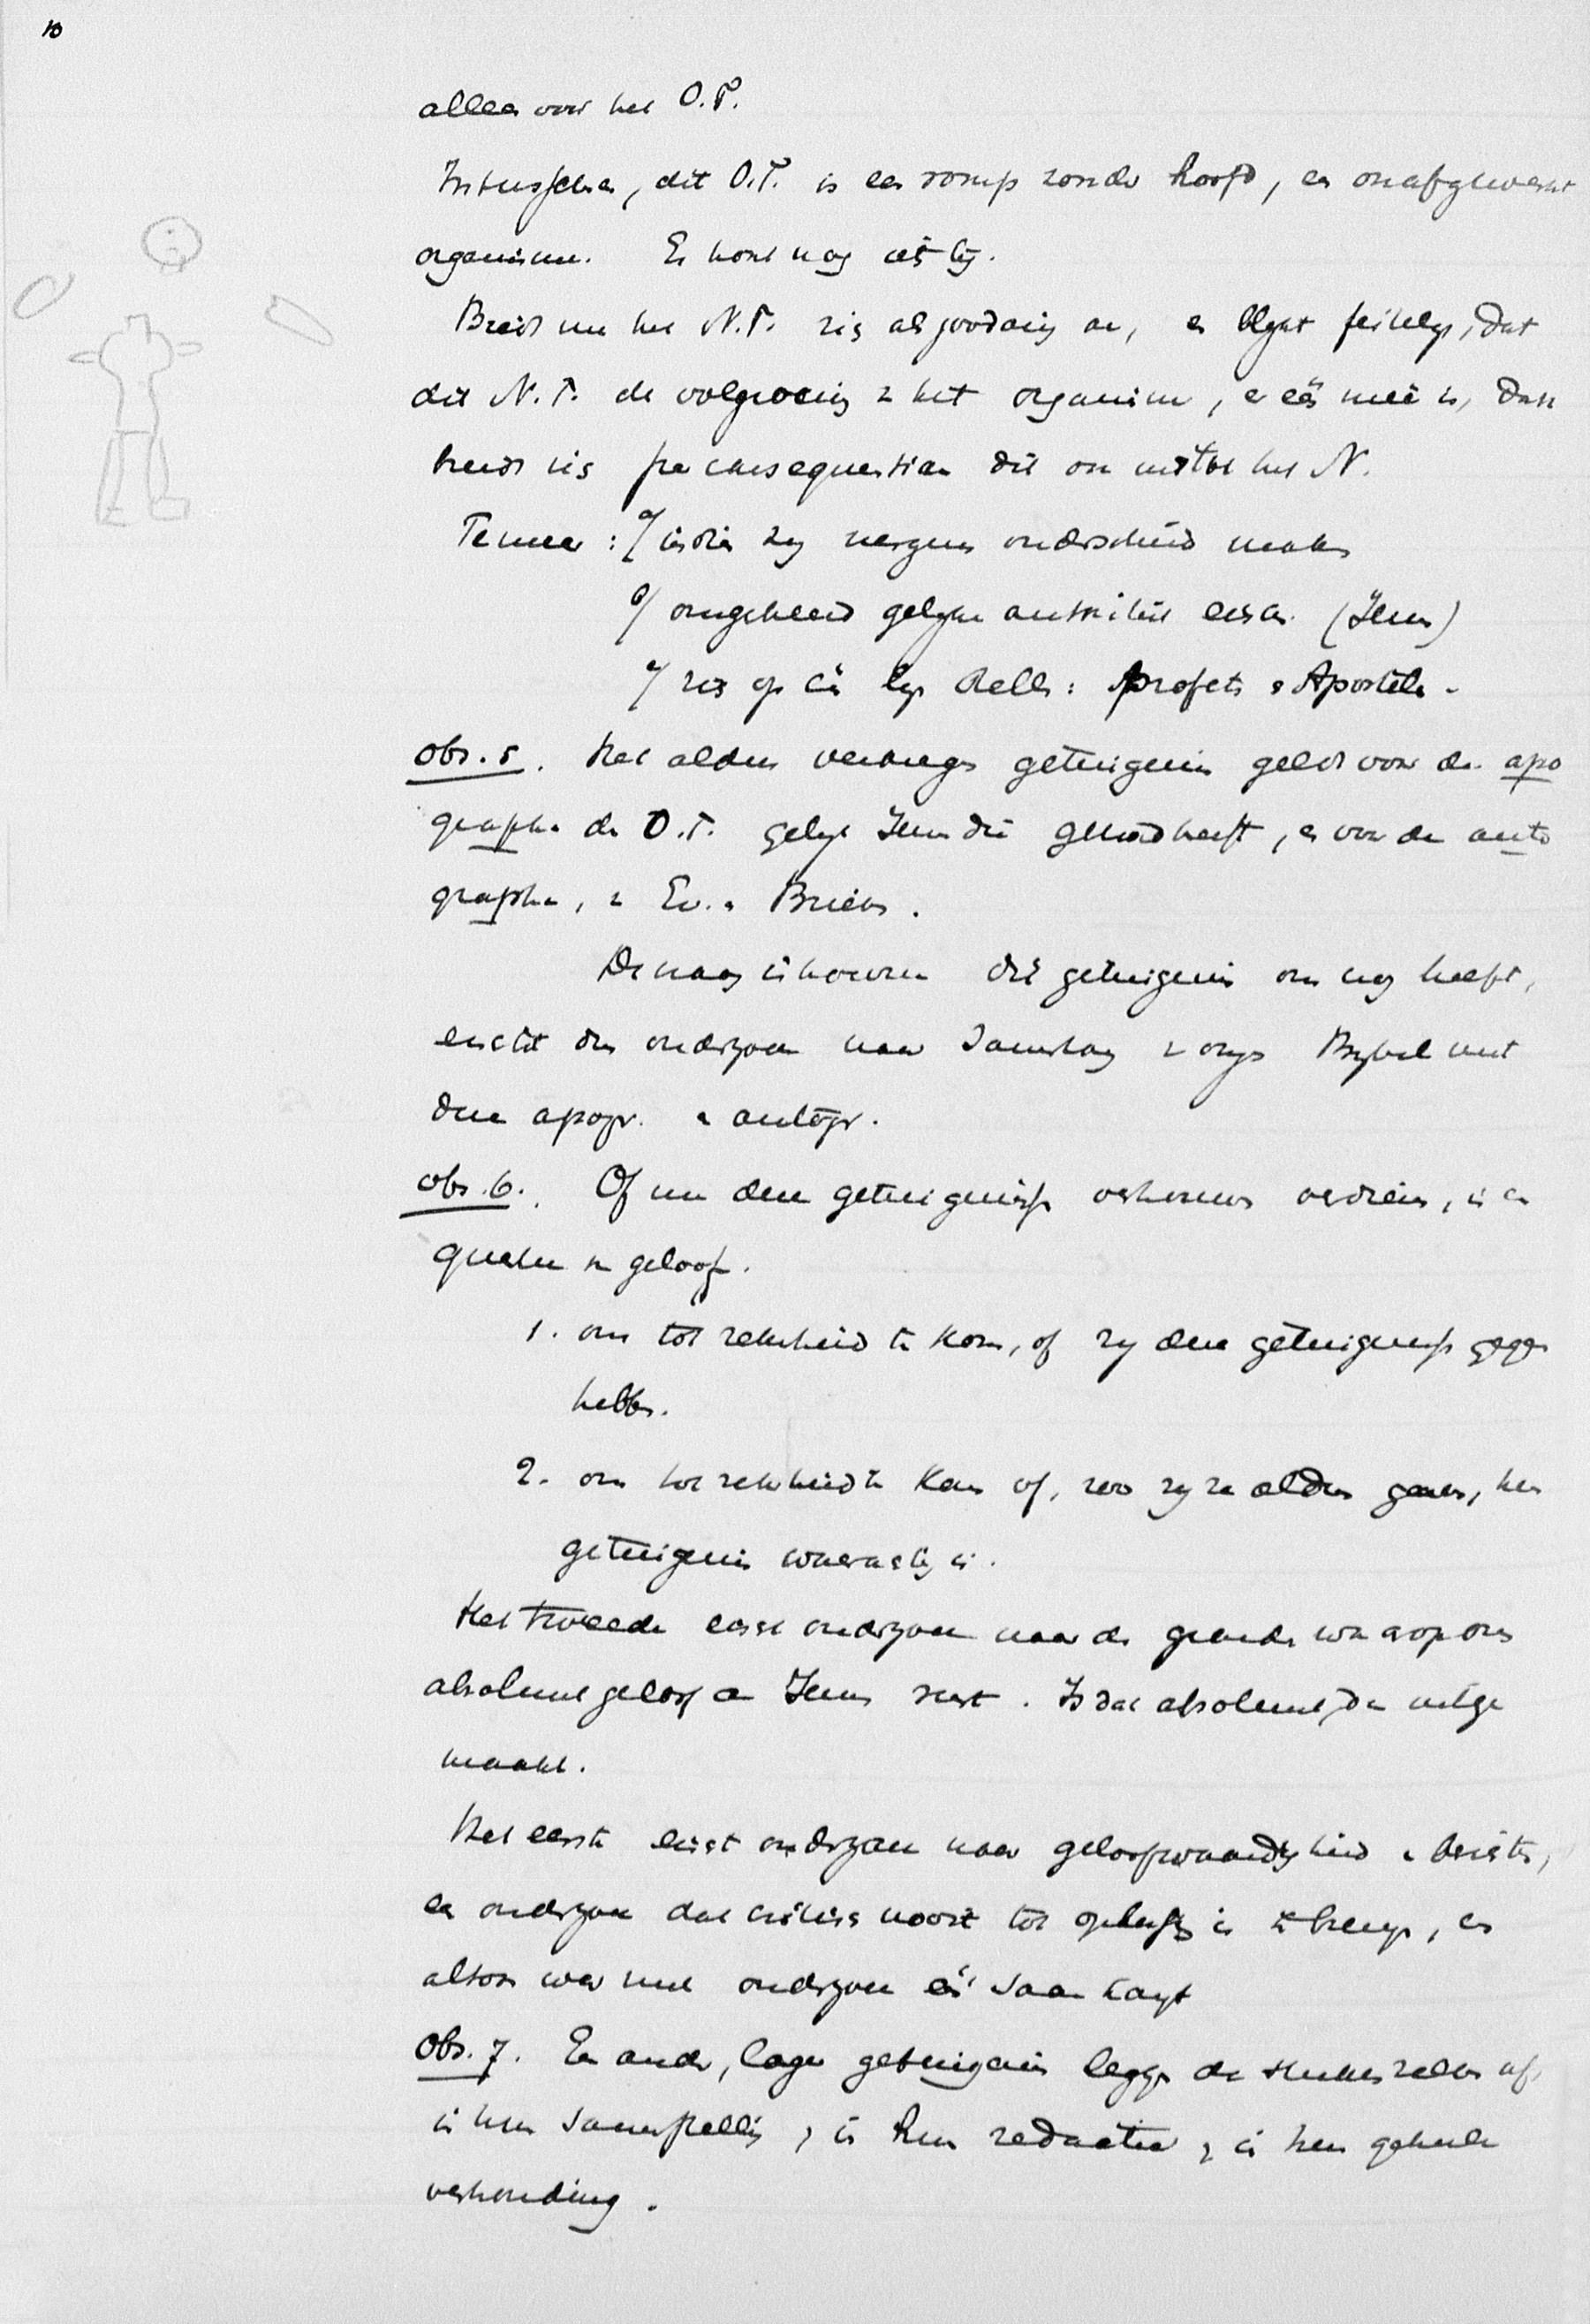 10
alleen voor het O.T.
Intusschen, dit O.T. is een romp zonder hoofd, een onafgewerkt
organisme. Er hoort nog iets bij.
Breidt nu het N.T. zich als zoodanig aan, en blijkt feitelijk, dat
dit N.T. de volgroeiing v. het organisme, en één mee is, dan
breidt zich per consequentiam dit ook uit tot het N.
Te meer : a/ indien zij nergens onderscheid maken
b/ omgekeerd gelijke autoriteit eischen. (Jezus)
c/ zich op één lijn stellen : Profeten & Apostelen.
Obs. 5. Het aldus verkregen getuigenis geldt voor de apo
grapha des O.T. gelijk Jezus die gekend heeft, en voor de auto
grapha, v. Ev. & Brieven.
De vraag in hoeverre dit getuigenis ons nog heeft,
eischt dus onderzoek naar samenhang v. onzen Bijbel met
deze apogr. & autogr.
obs. 6. Of nu deze getuigenissen vertrouwen verdienen, is een
quaestie v. geloof.
1. om tot zekerheid te komen, of zij deze getuigenissen gegeven
hebben.
2. om tot zekerheid te komen of, zoo zij ze aldus gaven, hun
getuigenis waarachtig is.
Het tweede eischt onderzoek naar de gronden waarop ons
absoluut geloof aan Jezus rust. Is dat absoluut, dan uitge
maakt.
Het eerste eischt onderzoek naar geloofwaardigheid v. berichten,
een onderzoek dat critisch nooit tot oplossing is te brengen, en
altoos weer met onderzoek één samenhangt
Obs. 7. Een ander, lager getuigenis leggen de stukken zelven af,
in hun samenstelling, in hun redactie, in hun geheele
verhouding.